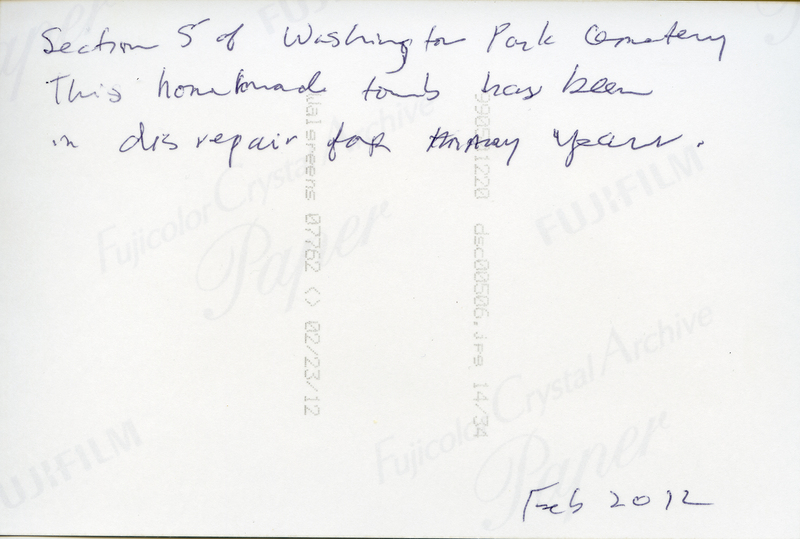 Section 5 of Washington Park Cemetery
This homemade tomb has been
in disrepair for many years.
Walgreens 07762 <> 02/23/12
dsc00506.jpg 14/34
Fujicolor Crystal Archive
Paper
FUJIFILM
FUJIFILM
Fujicolor Crystal Archive
Paper
FUJIFILM
Feb 2012